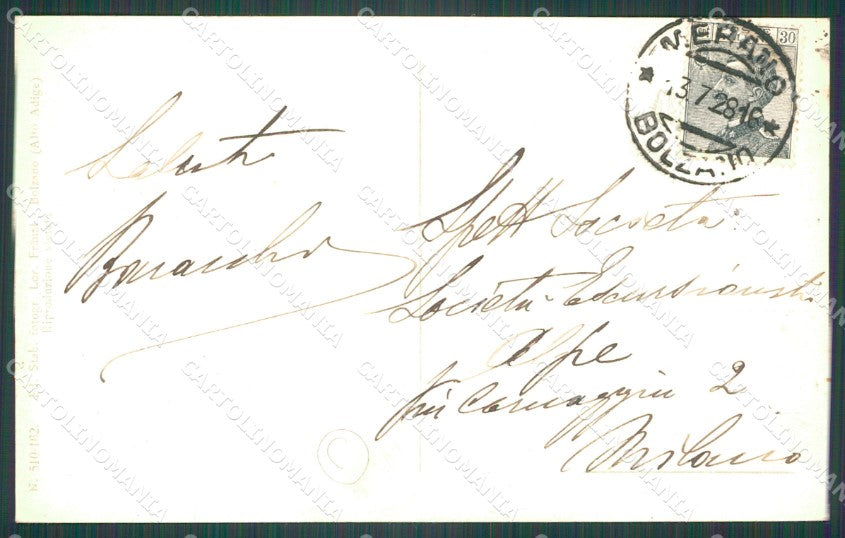 Saluti
Spett Società
Società Escursionisti
Alpe
Via Caravaggio 2
Milano
MERANO
13.7.28.16
BOLZANO
30
N. 510-182 Stab. Fotogr. Lor. Fränzl Bolzano (Alto Adige)
Riproduzione
CARTOLINOMANIA